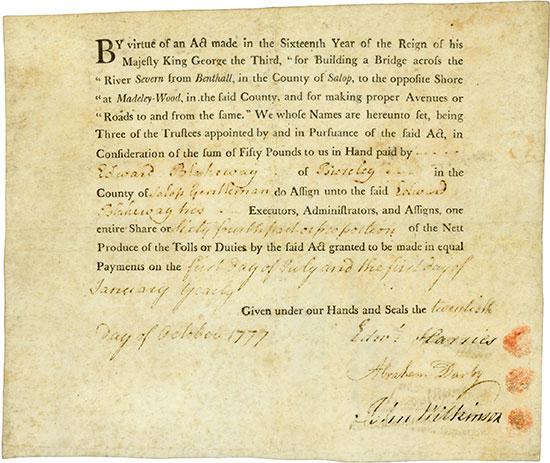 BY virtue of an Act made in the Sixteenth Year of the Reign of his
Majeſty King George the Third, "for Building a Bridge acroſs the
"River Severn from Benthall, in the County of Salop, to the oppoſite Shore
"at Madeley-Wood, in the ſaid County, and for making proper Avenues or
"Roads to and from the ſame." We whose Names are hereunto ſet, being
Three of the Truſtees appointed by and in Purſuance of the ſaid Act, in
Conſideration of the ſum of Fifty Pounds to us in Hand paid by
Edward Blakeway of Broseley in the
County of Salop Gentleman do Aſſign unto the ſaid Edward
Blakeway his Executors, Adminiſtrators, and Aſſigns, one
entire Share or Sixty fourth part or proportion of the Nett
Produce of the Tolls or Duties by the ſaid Act granted to be made in equal
Payments on the first Day of July and the first day of
January Yearly
Given under our Hands and Seals the twentieth
Day of October 1777
Edwd. Harries
Abraham Darby
John Wilkinson